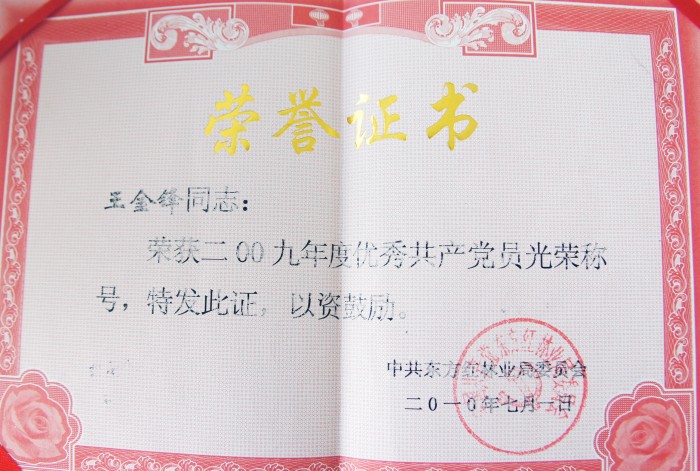 荣誉证书
王金锋同志：
荣获二00九年度优秀共产党员光荣称
号，特发此证，以资鼓励。
中共东方红林业局委员会
二0一0年七月一日